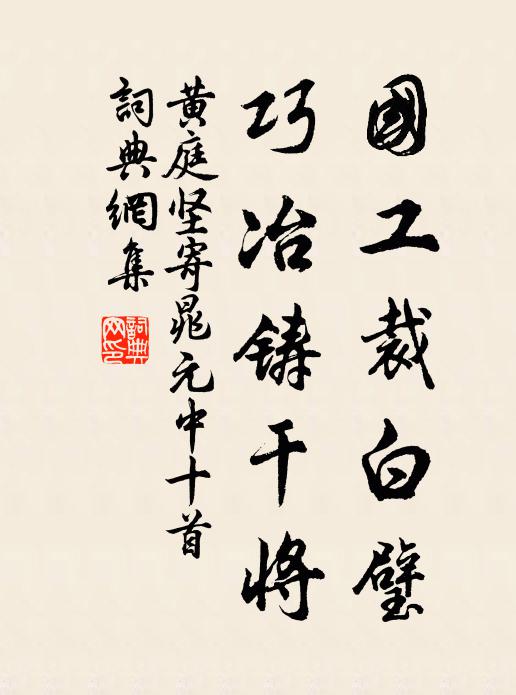 國工裁白璧
巧冶鑄干將
黄庭坚寄晁元中十首
詞典網集
詞典網印